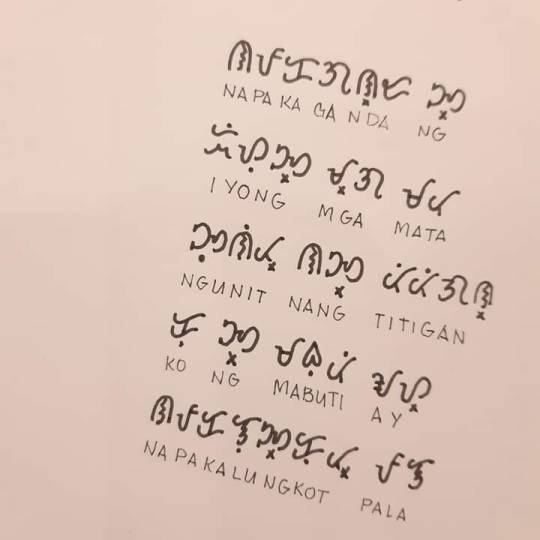 ᜈᜉᜃᜄᜈ᜔ᜇ ᜅ᜔
NAPAKAGANDA NG
ᜁᜌᜓᜅ᜔ ᜋ᜔ᜄ ᜋᜆ
IYONG MGA MATA
ᜅᜓᜈᜒᜆ᜔ ᜈᜅ᜔ ᜆᜒᜆᜒᜄᜈ᜔
NGUNIT NANG TITIGAN
ᜃᜓ ᜅ᜔ ᜋᜊᜓᜆᜒ ᜀᜌ᜔
KO NG MABUTI AY
ᜈᜉᜃᜎᜓᜅ᜔ᜃᜓᜆ᜔ ᜉᜎ
NAPAKALUNGKOT PALA